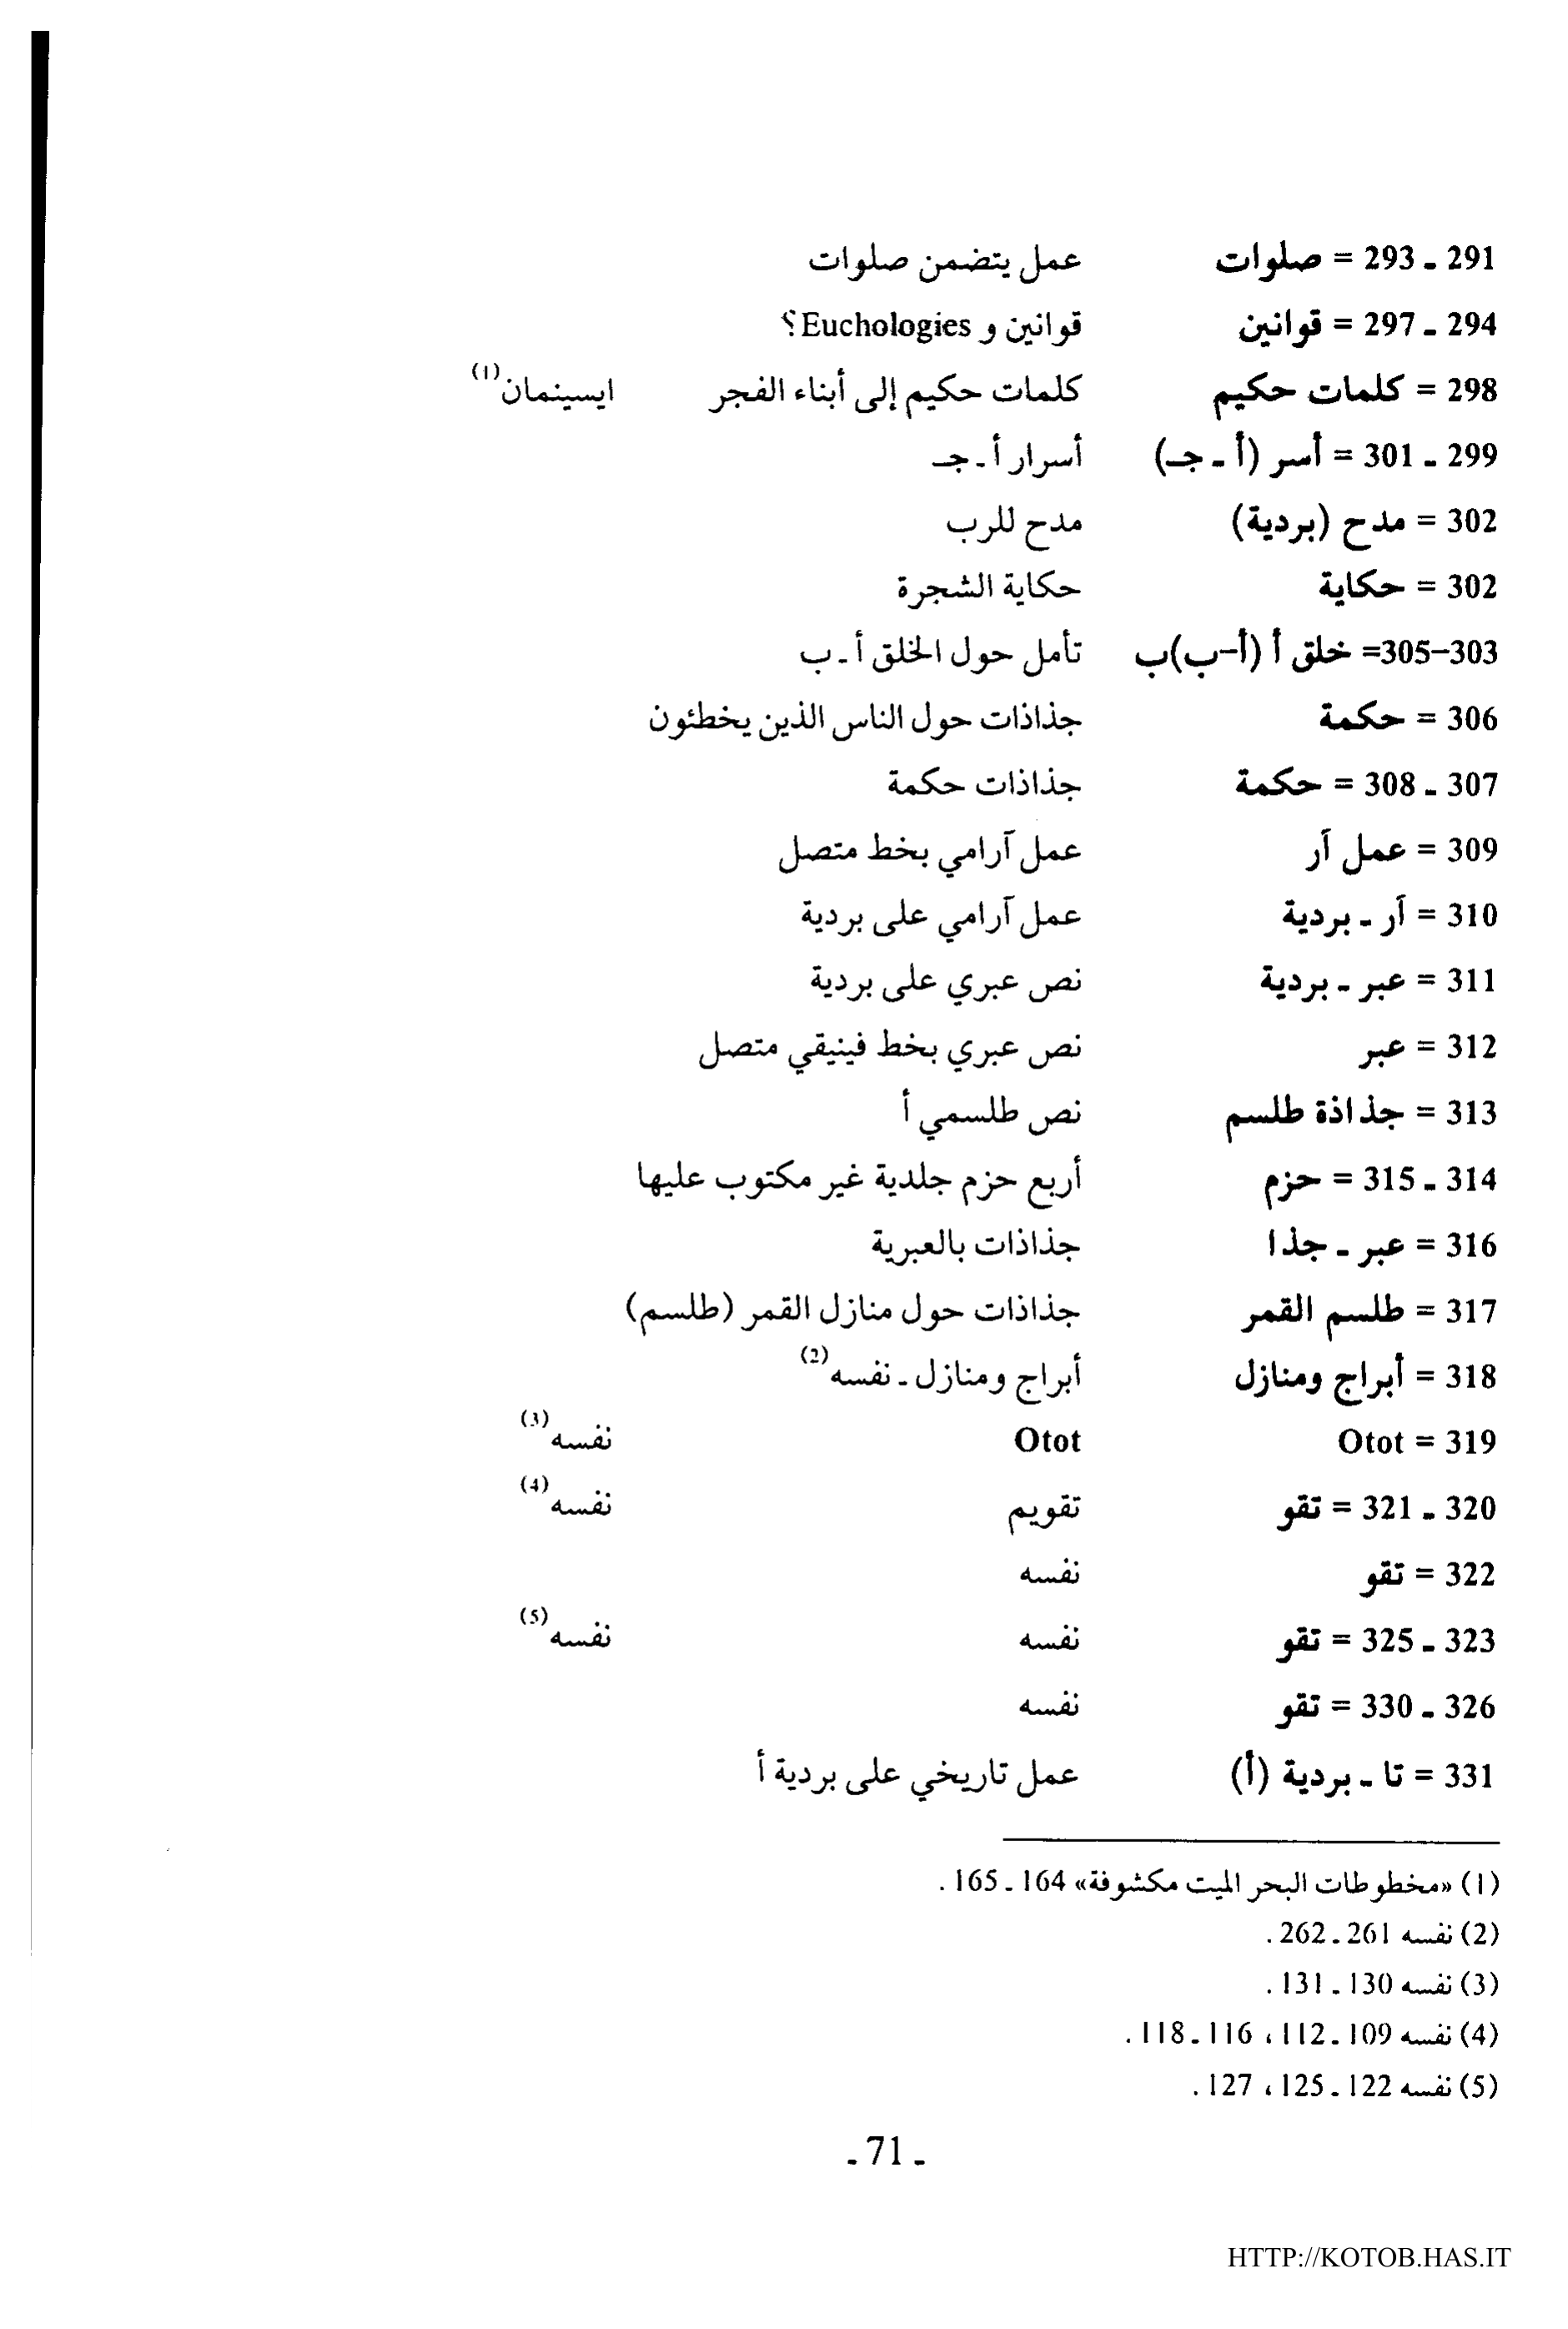 291 ـ 293 = صلوات عمل يتضمن صلوات
294 ـ 297 = قوانين قوانين و Euchologies؟
298 = كلمات حكيم كلمات حكيم إلى أبناء الفجر ايسينمان(1)
299 ـ 301 = أسر (أ ـ جـ) أسرار أ ـ جـ
302 = مدح (بردية) مدح للرب
302 = حكاية حكاية الشجرة
303–305= خلق أ (أ–ب)ب تأمل حول الخلق أ ـ ب
306 = حكمة جذاذات حول الناس الذين يخطئون
307 ـ 308 = حكمة جذاذات حكمة
309 = عمل آر عمل آرامي بخط متصل
310 = آر ـ بردية عمل آرامي على بردية
311 = عبر ـ بردية نص عبري على بردية
312 = عبر نص عبري بخط فينيقي متصل
313 = جذاذة طلسم نص طلسمي أ
314 ـ 315 = حزم أربع حزم جلدية غير مكتوب عليها
316 = عبر ـ جذا جذاذات بالعبرية
317 = طلسم القمر جذاذات حول منازل القمر (طلسم)
318 = أبراج ومنازل أبراج ومنازل ـ نفسه(2)
319 = Otot Otot نفسه(3)
320 ـ 321 = تقو تقويم نفسه(4)
322 = تقو نفسه
323 ـ 325 = تقو نفسه نفسه(5)
326 ـ 330 = تقو نفسه
331 = تا ـ بردية (أ) عمل تاريخي على بردية أ
(1) «مخطوطات البحر الميت مكشوفة» 164 ـ 165 .
(2) نفسه 261 ـ 262 .
(3) نفسه 130 ـ 131 .
(4) نفسه 109 ـ 112 ، 116 ـ 118 .
(5) نفسه 122 ـ 125 ، 127 .
ـ 71 ـ
HTTP://KOTOB.HAS.IT